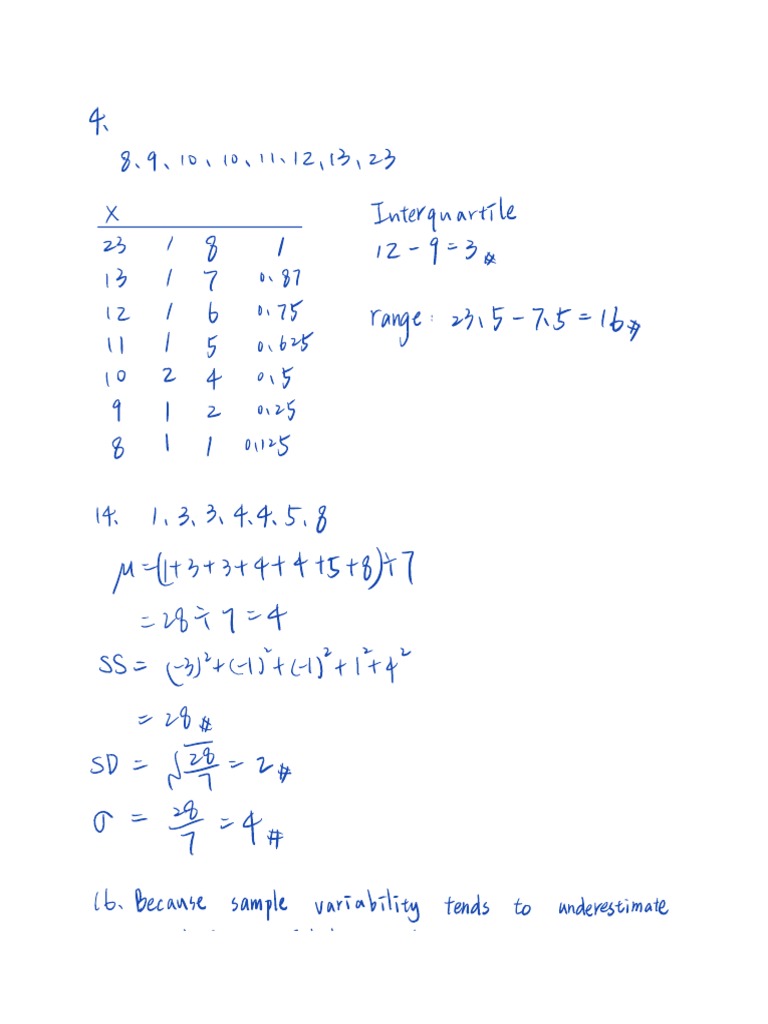 4、
8、9、10、10、11、12、13、23
X
23 1 8 1
13 1 7 0.87
12 1 6 0.75
11 1 5 0.625
10 2 4 0.5
9 1 2 0.25
8 1 1 0.125
Interquartile
12 - 9 = 3 #
range: 23.5 - 7.5 = 16 #
14、 1、3、3、4、4、5、8
μ = (1+3+3+4+4+5+8) ÷ 7
= 28 ÷ 7 = 4
SS = (-3)² + (-1)² + (-1)² + 1² + 4²
= 28 #
SD = √28/7 = 2 #
σ = 28/7 = 4 #
16、 Because sample variability tends to underestimate